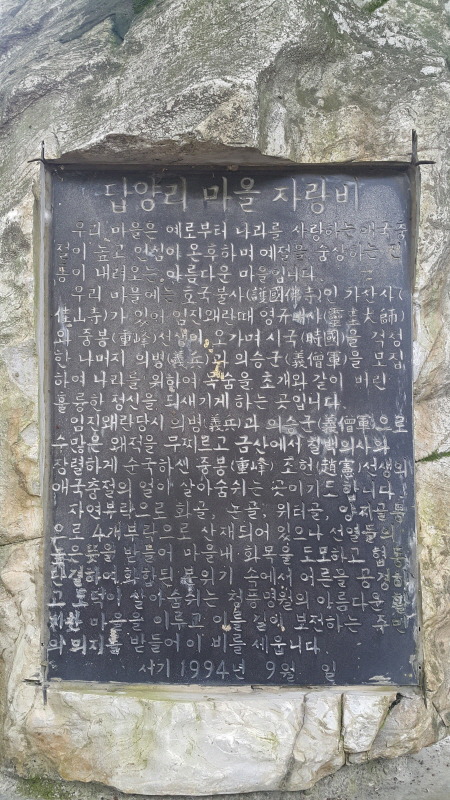 답양리 마을 자랑비
우리 마을은 예로부터 나라를 사랑하는 애국충
절이 높고 인심이 온후하며 예절을 숭상하는 전
통이 내려오는 아름다운 마을입니다.
우리 마을에는 호국불사(護國佛寺)인 가산사(
佳山寺)가 있어 임진왜란때 영규대사(靈圭大師)
와 중봉(重峰)선생이 오가며 시국(時國)을 걱정
한 나머지 의병(義兵)과 의승군(義僧軍)을 모집
하여 나라를 위하여 목숨을 초개와 같이 버린
훌륭한 정신을 되새기게 하는 곳입니다.
임진왜란당시 의병(義兵)과 의승군(義僧軍)으로
수많은 왜적을 무찌르고 금산에서 칠백의사와
장렬하게 순국하신 중봉(重峰) 조헌(趙憲)선생의
애국충절의 얼이 살아숨쉬는 곳이기도 합니다
자연부락으로 화골, 논골, 위터골, 양지골 등
으로 4개부락으로 산재되어 있으나 선열들의
높은 뜻을 받들어 마을내 화목을 도모하고 협동
단결하여 화합된 분위기 속에서 어른들 공경하
고 도덕이 살아숨쉬는 청풍명월의 아름다운
마을을 이루고 이를 길이 보전하는 주민
의 의지를 받들어 이 비를 세웁니다.
서기 1994년 9월 일